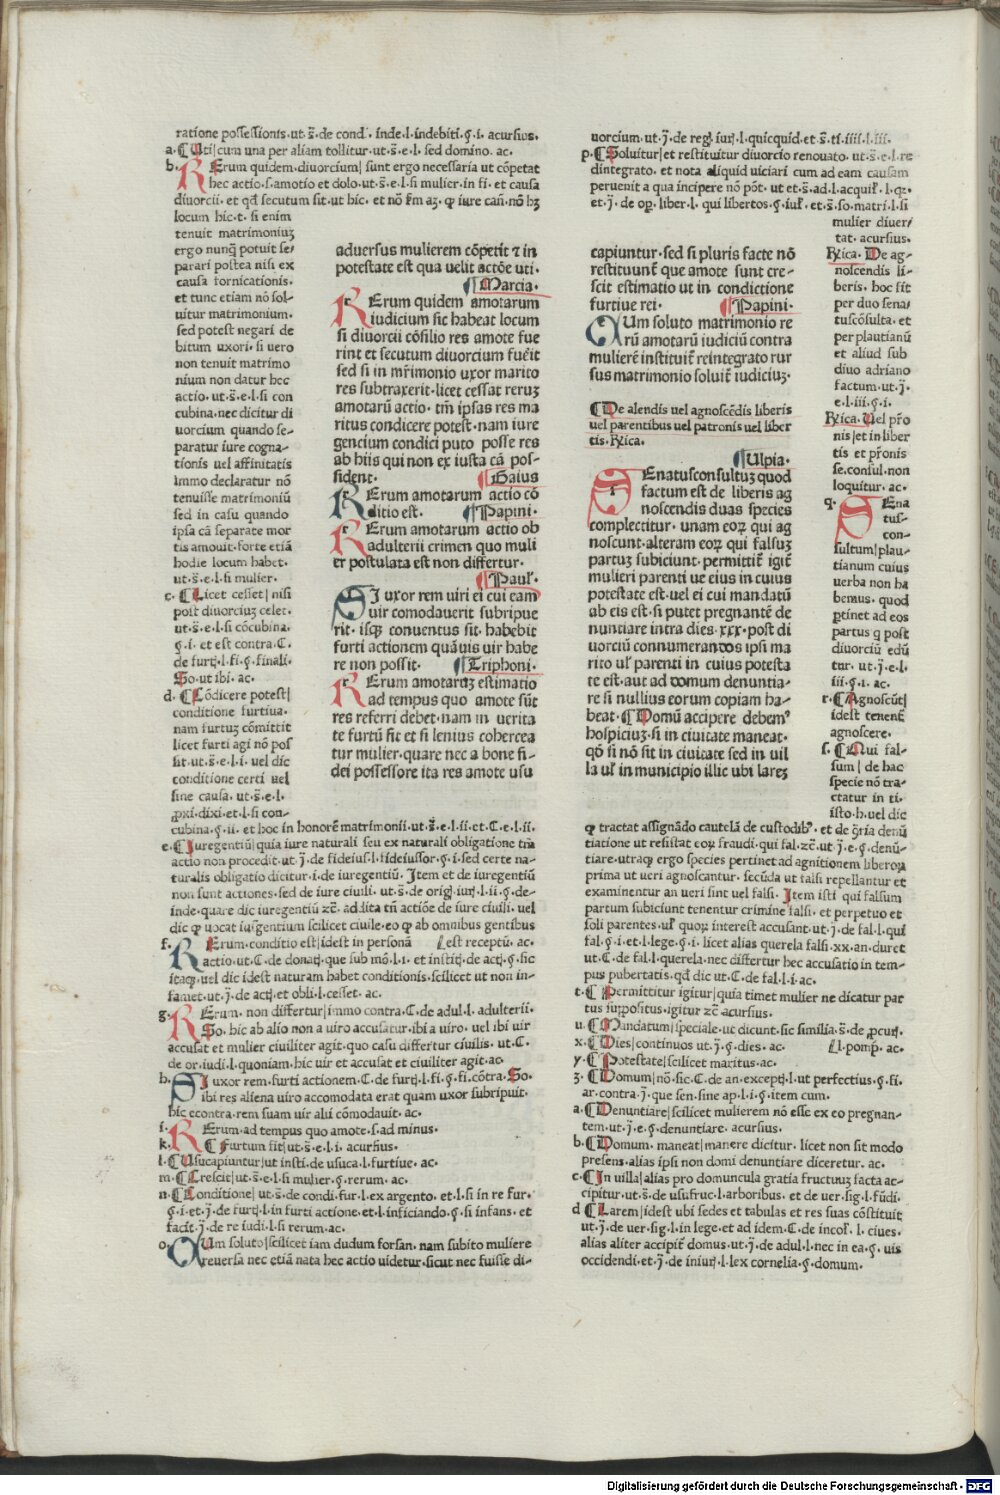 ratione possessionis·ut·s̄·de cond̄·inde·l·indebiti·ꝯ·i·acursius·
a·¶Uti|cum una per aliam tollitur·ut·s̄·e·l·sed domino·ac·
b·REerum quidem·diuorcium|sunt ergo necessaria ut cōpetat
hec actio·s·amotio et dolo·ut·s̄·e·l·si mulier·in fi·et causa
diuorcii·et qd̄ secutum sit·ut hic·et nō
locum hic·t·si enim
tenuit matrimoniuꝫ
ergo nunꝗ potuit se/
parari postea nisi ex
causa fornicationis·
et tunc etiam nō sol/
uitur matrimonium·
sed potest negari de
bitum uxori·si uero
non tenuit matrimo
nium non datur hec
actio·ut·s̄·e·l·si con
cubina·nec dicitur di
uorcium quando se/
paratur iure cogna/
tionis uel affinitatis
immo declaratur nō
tenuisse matrimoniū
sed in casu quando
ipsa cā separate mor
tis amouit·forte etiā
hodie locum habet·
ut·s̄·e·l·si mulier·
c·¶Licet cesset|nisi
post diuorciuꝫ celet·
ut·s̄·e·l·si cōcubina·
ꝯ·i·et est contra·C·
de furt̄·l·fi·ꝯ·finali·
So·ut ibi·ac·
d·¶Cōdicere potest|
conditione furtiua·
nam furtuꝫ cōmittit
licet furti agi nō pos
sit·ut·s̄·e·l·i·uel dic
conditione certi uel
sine causa·ut·s̄·e·l·
ꝓxi·dixi·et·l·si con/
cubina·ꝯ·ii·et hoc in honorē matrimonii·ut·s̄·e·l·ii·et·C·e·l·ii·
e·¶Iuregentiū|quia iure naturali seu ex naturali obligatione tm̄
actio non procedit·ut·j̄·de fideius·l·fideiussor·ꝯ·i·sed certe na/
turalis obligatio dicitur·i·de iuregentiū·Item et de iuregentiū
non sunt actiones·sed de iure ciuili·ut·s̄·de oriḡ·iur̄·l·ii·ꝯ·de/
inde·quare dic iuregentiū zc̄·ad lita tn̄ actiōe de iure ciuili·uel
dic ꝙ uocat iusgentium scilicet ciuile·eo ꝙ ab omnibus gentibus
f·REerum·conditio est|idest in personā ⁄est receptū·ac·
actio·ut·C·de donat̄·que sub mō·l·i·et instit̄·de act̄·ꝯ·sic
itaqꝫ·uel dic idest naturam habet conditionis·scilicet ut non in/
famet·ut·j̄·de act̄·et obli·l·cesset·ac·
g·REerum·non differtur|immo contra·C·de adul·l·adulterii·
So·hic ab alio non a uiro accusatur·ibi a uiro·uel ibi uir
accusat et mulier ciuiliter agit·quo casu differtur ciuilis·ut·C·
de or·iudi·l·quoniam·hic uir et accusat et ciuiliter agit·ac·
h·SI uxor rem·furti actionem·C·de furt̄·l·fi·ꝯ·fi·cōtra·So·
ibi res aliena uiro accomodata erat quam uxor subripuit·
hic econtra·rem suam uir alii cōmodauit·ac·
i·REerum·ad tempus quo amote·s·ad minus·
k·¶Furtum sit|ut·s̄·e·l·i·acursius·
l·¶Usucapiuntur|ut insti·de usuca·l·furtiue·ac·
m·¶Crescit|ut·s̄·e·l·si mulier·ꝯ·rerum·ac·
n·¶Conditione|ut·s̄·de condi·fur·l·ex argento·et·l·si in re fur·
ꝯ·i·et·j̄·de furt̄·l·in furti actione·et·l·inficiando·ꝯ·si infans·et
facit·j̄·de re iudi·l·si rerum·ac·
o·CUm soluto|scilicet iam dudum forsan·nam subito muliere
reuersa nec etiā nata hec actio uidetur·sicut nec fuisse di/
aduersus mulierem cōpetit ⁊ in
potestate est qua uelit actōe uti·
¶Marcia·
REerum quidem amotarum
iudicium sic habeat locum
si diuorcii cōsilio res amote fue
rint et secutum diuorcium fuēit
sed si in mr̄imonio uxor marito
res subtraxerit·licet cessat reruꝫ
amotarū actio·tm̄ ipsas res ma
ritus condicere potest·nam iure
gencium condici puto posse res
ab hiis qui non ex iusta cā pos/
sident· ¶Gaius
REerum amotarum actio cō
ditio est· ¶Papini·
REerum amotarum actio ob
adulterii crimen quo muli
er postulata est non differtur·
¶Paul̄·
SI uxor rem uiri ei cui eam
uir comodauerit subripue
rit·isqꝫ conuentus sit·habebit
furti actionem quāuis uir habe
re non possit· ¶Triphoni·
REerum amotaruꝫ estimatio
ad tempus quo amote sūt
res referri debet·nam in uerita
te furtū fit et si lenius cohercea
tur mulier·quare nec a bone fi/
dei possessore ita res amote usu
uorcium·ut·j̄·de reḡ·iur̄·l·quicquid·et·s̄·ti·iiii·l·iii·
p·¶Soluitur|et restituitur diuorcio renouato·ut·s̄·e·l·re
dintegrato·et nota aliquid uiciari cum ad eam causam
peruenit a qua incipere nō pōt·ut et·s̄·ad·l·acquil̄·l·
et·j̄·de op̄·liber·l·qui libertos·ꝯ·iul̄·et·s̄·so·matri·l·si
mulier diuer/
tat·acursius·
capiuntur·sed si pluris facte nō
restituunt̄ que amote sunt cre/
scit estimatio ut in condictione
furtiue rei· ¶Papini·
CUm soluto matrimonio re
rū amotarū iudiciū contra
mulierē instituit̄ reintegrato rur
sus matrimonio soluit̄ iudiciuꝫ·
¶De alendis uel agnoscēdis liberis
uel parentibus uel patronis uel liber
tis·R̄ica·
¶Ulpia·
SEnatusconsultuꝫ quod
factum est de liberis ag
noscendis duas species
complectitur·unam eoꝝ qui ag
noscunt·alteram eoꝝ qui falsuꝫ
partuꝫ subiciunt·permittit̄ igit̄
mulieri parenti ue eius in cuius
potestate est·uel ei cui mandatū
ab eis est·si putet pregnantē de
nuntiare intra dies·xxx·post di
uorciū connumerandos ipsi ma
rito ul̄ parenti in cuius potesta
te est·aut ad domum denuntia/
re si nullius eorum copiam ha/
beat·¶Domū accipere debem⁹
hospiciuꝫ·si in ciuitate maneat·
qd̄ si nō sit in ciuitate sed in uil
la ul̄ in municipio illic ubi lareꝫ
R̄ica·De ag/
noscendis li/
beris·hoc sit
per duo sena/
tuscōsulta·et
per plautianū
et aliud sub
diuo adriano
factum·ut·j̄·
e·l·iii·ꝯ·i·
R̄ica·Uel pr̄o
nis|et in liber
tis et pr̄onis
se·consul·non
loquitur·ac·
q·SEna
tus/
con/
sultum|plau/
tianum cuius
uerba non ha
bemus·quod
ꝑtinet ad eos
partus ꝗ post
diuorciū edū
tur·ut·j̄·e·l·
iii·ꝯ·i·ac·
r·¶Agnoscūt|
idest tenent̄
agnoscere·
s·¶Qui fal/
sum|de hac
specie nō tra/
ctatur in ti·
isto·h·uel dic
ꝙ tractat assignādo cautelā de custodib⁹·et de ꝯ̄ria denū
tiatione ut resistat eoꝝ fraudi·qui fal·zc̄·ut·j̄·e·ꝯ·denū/
tiare·utraqꝫ ergo species pertinet ad agnitionem liberoꝝ
prima ut ueri agnoscantur·secūda ut falsi repellantur et
examinentur an ueri sint uel falsi·Item isti qui falsum
partum subiciunt tenentur crimine falsi·et perpetuo et
soli parentes·ul̄ quoꝝ interest accusant·ut·j̄·de fal·l·qui
fal·ꝯ·i·et·l·lege·ꝯ·i·licet alias querela falsi·xx·an·duret
ut·C·de fal·l·querela·nec differtur hec accusatio in tem/
pus pubertatis·qd̄ dic ut·C·de fal·l·i·ac·
t·¶Permittitur igitur|quia timet mulier ne dicatur par
tus suppositus·igitur zc̄ acursius·
u·¶Mandatum|speciale·ut dicunt·sic similia·s̄·de ꝓcur̄·
x·¶Dies|continuos ut·j̄·ꝯ·dies·ac· ⁄l·pomp̄·ac·
y·¶Potestate|scilicet maritus·ac·
ʒ·¶Domum|nō·sic·C·de an·except̄·l·ut perfectius·ꝯ·fi·
ar·contra·j̄·que sen·sine ap·l·i·ꝯ·item cum·
a·¶Denuntiare|scilicet mulierem nō esse ex eo pregnan/
tem·ut·j̄·e·ꝯ·denuntiare·acursius·
b·¶Domum·maneat|manere dicitur·licet non sit modo
presens·alias ipsi non domi denuntiare diceretur·ac·
c·¶In uilla|alias pro domuncula gratia fructuuꝫ facta ac/
cipitur·ut·s̄·de usufruc·l·arboribus·et de uer·sig·l·fūdi·
d·¶Larem|idest ubi sedes et tabulas et res suas cōstituit
ut·j̄·de uer·sig·l·in lege·et ad idem·C·de incol̄·l·ciues·
alias aliter accipit̄ domus·ut·j̄·de adul·l·nec in ea·ꝯ·uis
occidendi·et·j̄·de iniur̄·l·lex cornelia·ꝯ·domum·
Digitalisierung gefördert durch die Deutsche Forschungsgemeinschaft - DFG